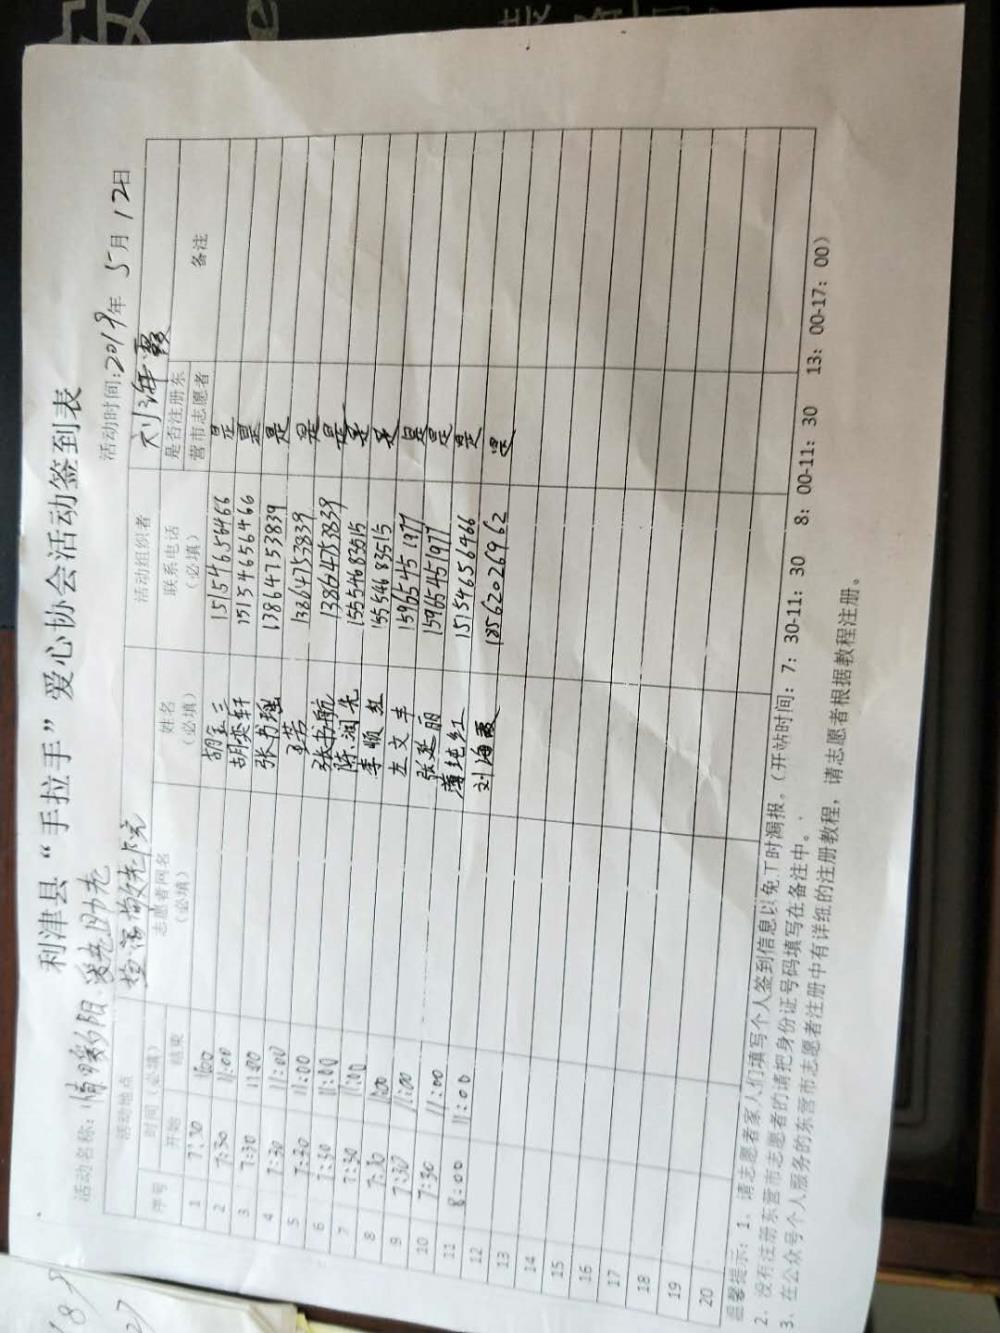 利津县“手拉手”爱心协会活动签到表
活动名称: 情暖夕阳 爱老助老 活动时间:2019年 5月 12日
活动地点 敬老院 活动组织者 刘海霞
序号 时间(必填) 志愿者网名(必填) 姓名(必填) 联系电话(必填) 是否注册东营市志愿者 备注
开始 结束
1 7:30 11:00 胡金三 15154656466 是
2 7:30 11:00 胡奕轩 15154656466 是
3 7:30 11:00 张书瑶 13864753839 是
4 7:30 11:00 王芳 13864753839 是
5 7:30 11:00 张书航 13864753839 是
6 7:30 11:00 陈润先 15554683515 是
7 7:30 11:00 李顺红 15554683515 是
8 7:30 11:00 左文丰 15965451977 是
9 7:30 11:00 张延丽 15965451977 是
10 7:30 11:00 薄纯红 15154656466 是
11 8:00 11:00 刘海霞 18562026962 是
12
13
14
15
16
17
18
19
20
温馨提示:1、请志愿者家人们填写个人签到信息以免工时漏报。(开站时间:7:30-11:30 8:00-11:30 13:00-17:00)
2、没有注册东营市志愿者的请把身份证号码填写在备注中。
3、在公众号个人服务的东营市志愿者注册中有详细的注册教程,请志愿者根据教程注册。